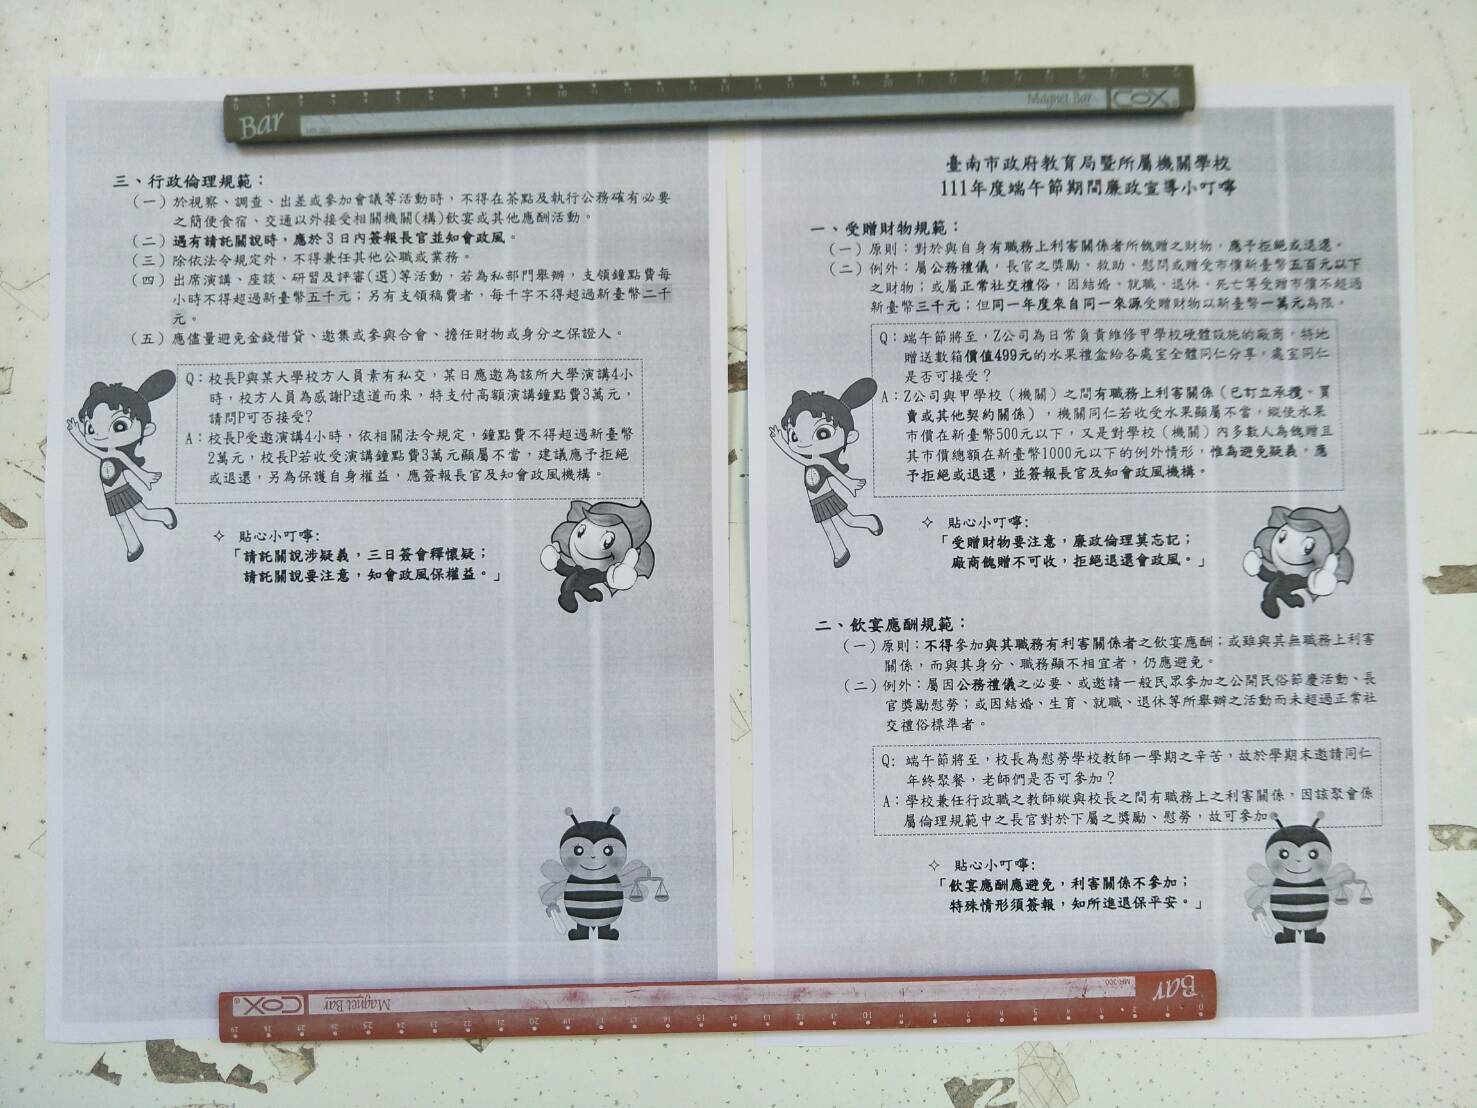 Bar
Magnet Bar COX
臺南市政府教育局暨所屬機關學校
111年度端午節期間廉政宣導小叮嚀
一、受贈財物規範：
(一)原則：對於與自身有職務上利害關係者所餽贈之財物，應予拒絕或退還。
(二)例外：屬公務禮儀，長官之獎勵、救助、慰問或贈受市價新臺幣五百元以下
之財物；或屬正常社交禮俗，因結婚、就職、退休、死亡等受贈市價不超過
新臺幣三千元；但同一年度來自同一來源受贈財物以新臺幣一萬元為限。
Q：端午節將至，Z公司為日常負責維修甲學校硬體設施的廠商，特地
贈送數箱價值499元的水果禮盒給各處室全體同仁分享，處室同仁
是否可接受？
A：Z公司與甲學校（機關）之間有職務上利害關係（已訂立承攬、買
賣或其他契約關係），機關同仁若收受水果顯屬不當，縱使水果
市價在新臺幣500元以下，又是對學校（機關）內多數人為餽贈且
其市價總額在新臺幣1000元以下的例外情形，惟為避免疑義，應
予拒絕或退還，並簽報長官及知會政風機構。
✧ 貼心小叮嚀：
「受贈財物要注意，廉政倫理莫忘記；
廠商餽贈不可收，拒絕退還會政風。」
二、飲宴應酬規範：
(一)原則：不得參加與其職務有利害關係者之飲宴應酬；或雖與其無職務上利害
關係，而與其身分、職務顯不相宜者，仍應避免。
(二)例外：屬因公務禮儀之必要、或邀請一般民眾參加之公開民俗節慶活動、長
官獎勵慰勞；或因結婚、生育、就職、退休等所舉辦之活動而未超過正常社
交禮俗標準者。
Q：端午節將至，校長為慰勞學校教師一學期之辛苦，故於學期末邀請同仁
年終聚餐，老師們是否可參加？
A：學校兼任行政職之教師縱與校長之間有職務上之利害關係，因該聚會係
屬倫理規範中之長官對於下屬之獎勵、慰勞，故可參加。
✧ 貼心小叮嚀：
「飲宴應酬應避免，利害關係不參加；
特殊情形須簽報，知所進退保平安。」
三、行政倫理規範：
(一)於視察、調查、出差或參加會議等活動時，不得在茶點及執行公務確有必要
之簡便食宿、交通以外接受相關機關(構)飲宴或其他應酬活動。
(二)遇有請託關說時，應於3日內簽報長官並知會政風。
(三)除依法令規定外，不得兼任其他公職或業務。
(四)出席演講、座談、研習及評審(選)等活動，若為私部門舉辦，支領鐘點費每
小時不得超過新臺幣五千元；另有支領稿費者，每千字不得超過新臺幣二千
元。
(五)應儘量避免金錢借貸、邀集或參與合會、擔任財物或身分之保證人。
Q：校長P與某大學校方人員素有私交，某日應邀為該所大學演講4小
時，校方人員為感謝P遠道而來，特支付高額演講鐘點費3萬元，
請問P可否接受？
A：校長P受邀演講4小時，依相關法令規定，鐘點費不得超過新臺幣
2萬元，校長P若收受演講鐘點費3萬元顯屬不當，建議應予拒絕
或退還，另為保護自身權益，應簽報長官及知會政風機構。
✧ 貼心小叮嚀：
「請託關說涉疑義，三日簽會釋懷疑；
請託關說要注意，知會政風保權益。」
Bar MR-300
Magnet Bar COX